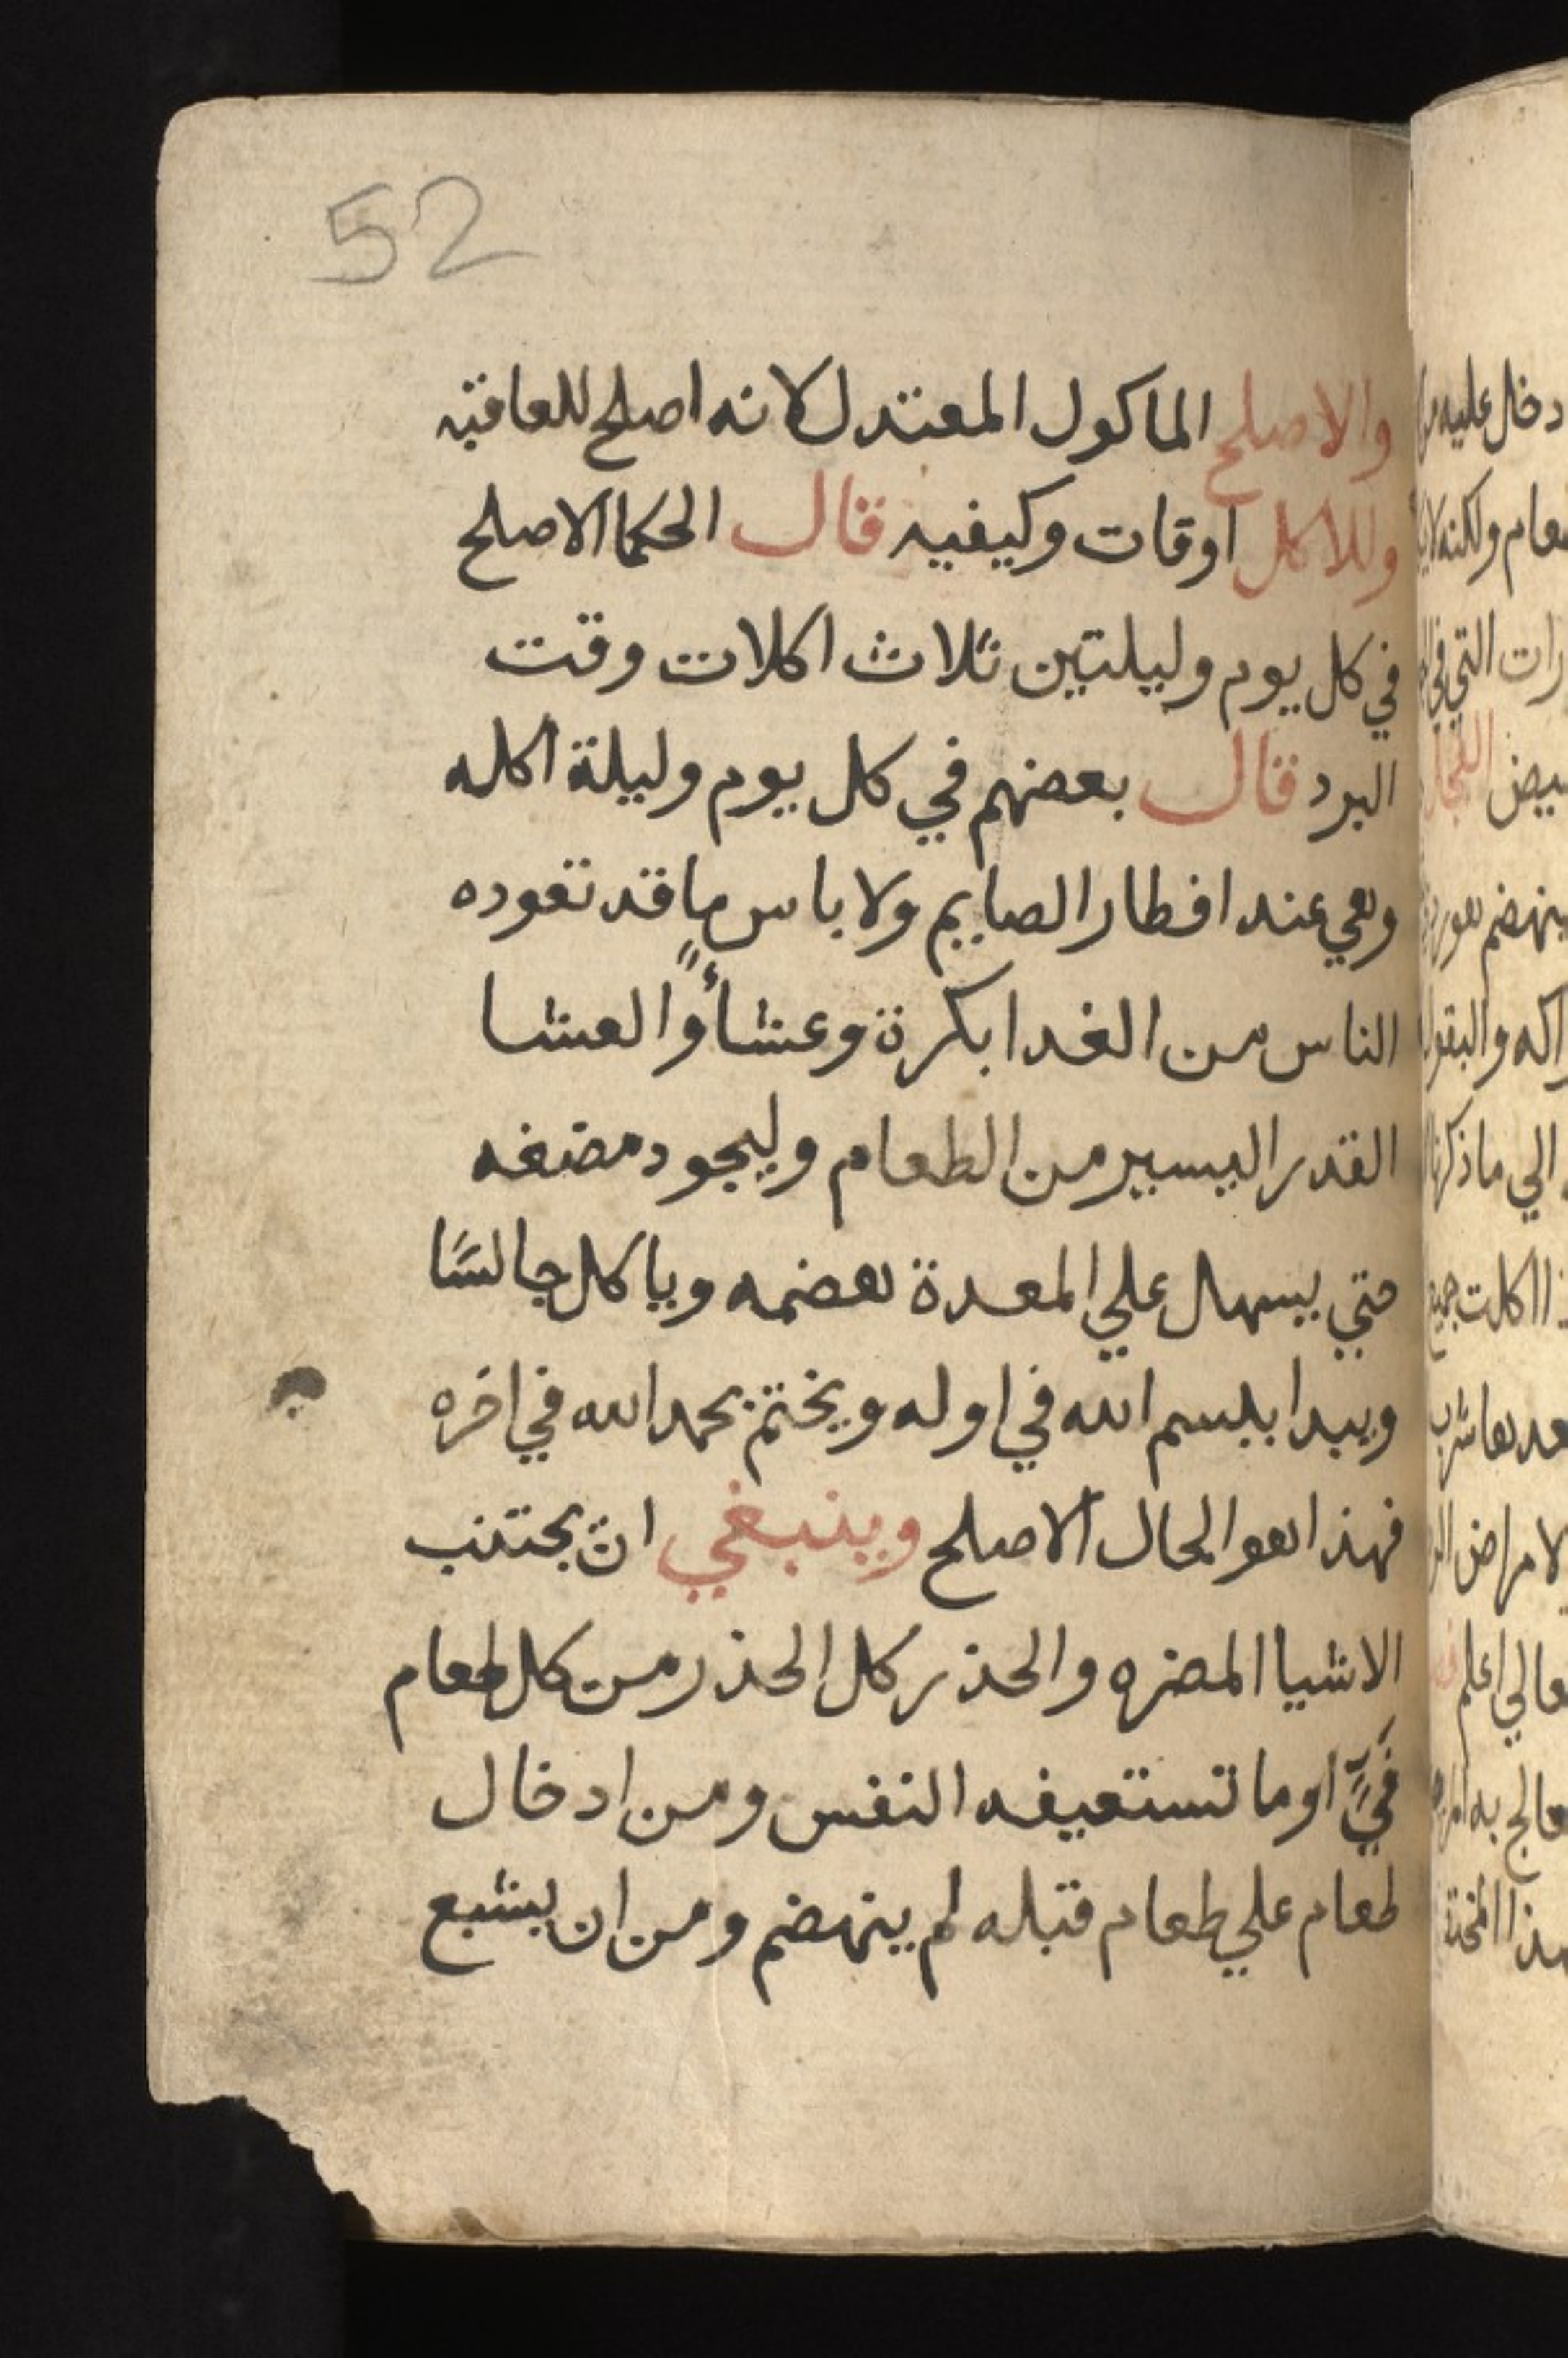 52
والاصلح الماكول المعتدل لانه اصلح للعاقبه
وللاكل اوقات وكيفيه قال الحكما الاصلح
في كل يوم وليلتين ثلاث اكلات وقت
البرد قال بعضهم في كل يوم وليلة اكله
وهي عند افطار الصايم ولا باس ما قد تعوده
الناس من الغدا بكرة وعشأً والعشا
القدر اليسير من الطعام وليجود مضغه
حتي يسهل علي المعدة هضمه وياكل جالسًا
ويبدا ببسم الله في اوله ويختم بحمد الله في اخره
فهذا هو الحال الاصلح وينبغي ان يجتنب
الاشيا المضره والحذر كل الحذر من كل طعام
او ما تستعيفه النفس ومن ادخال
طعام علي طعام قبله لم ينهضم ومن ان يشبع